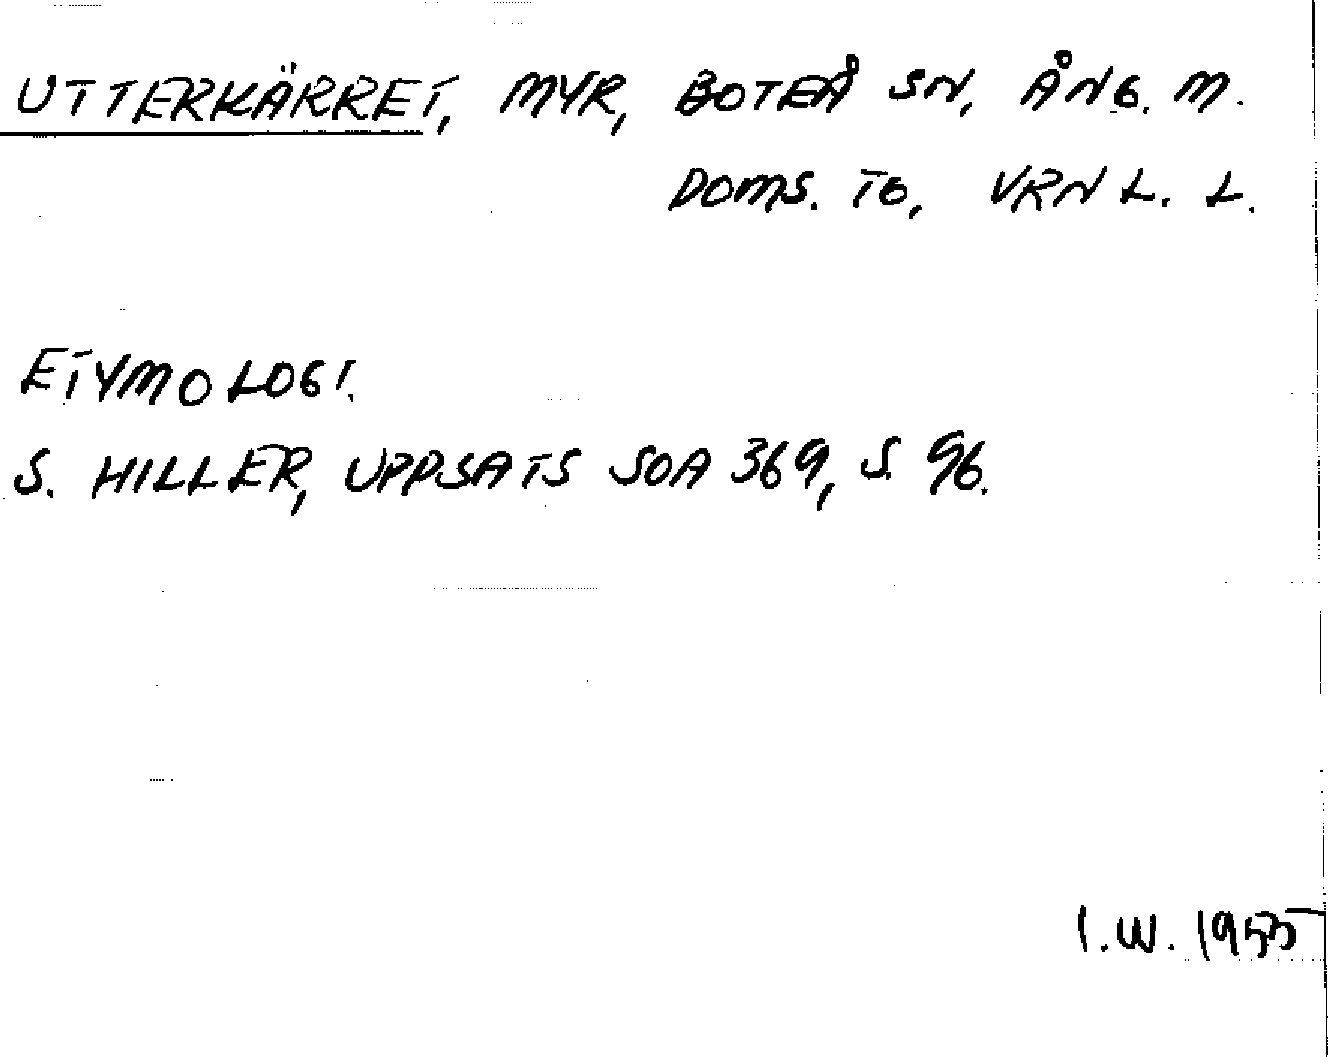 UTTERKÄRRET, MYR, BOTEÅ SN, ÅNG. M.
DOMS. TG, VRNL. L.
ETYMOLOGI.
S. HILLER, UPPSATS SOA 369, S. 96.
I.W. 1955